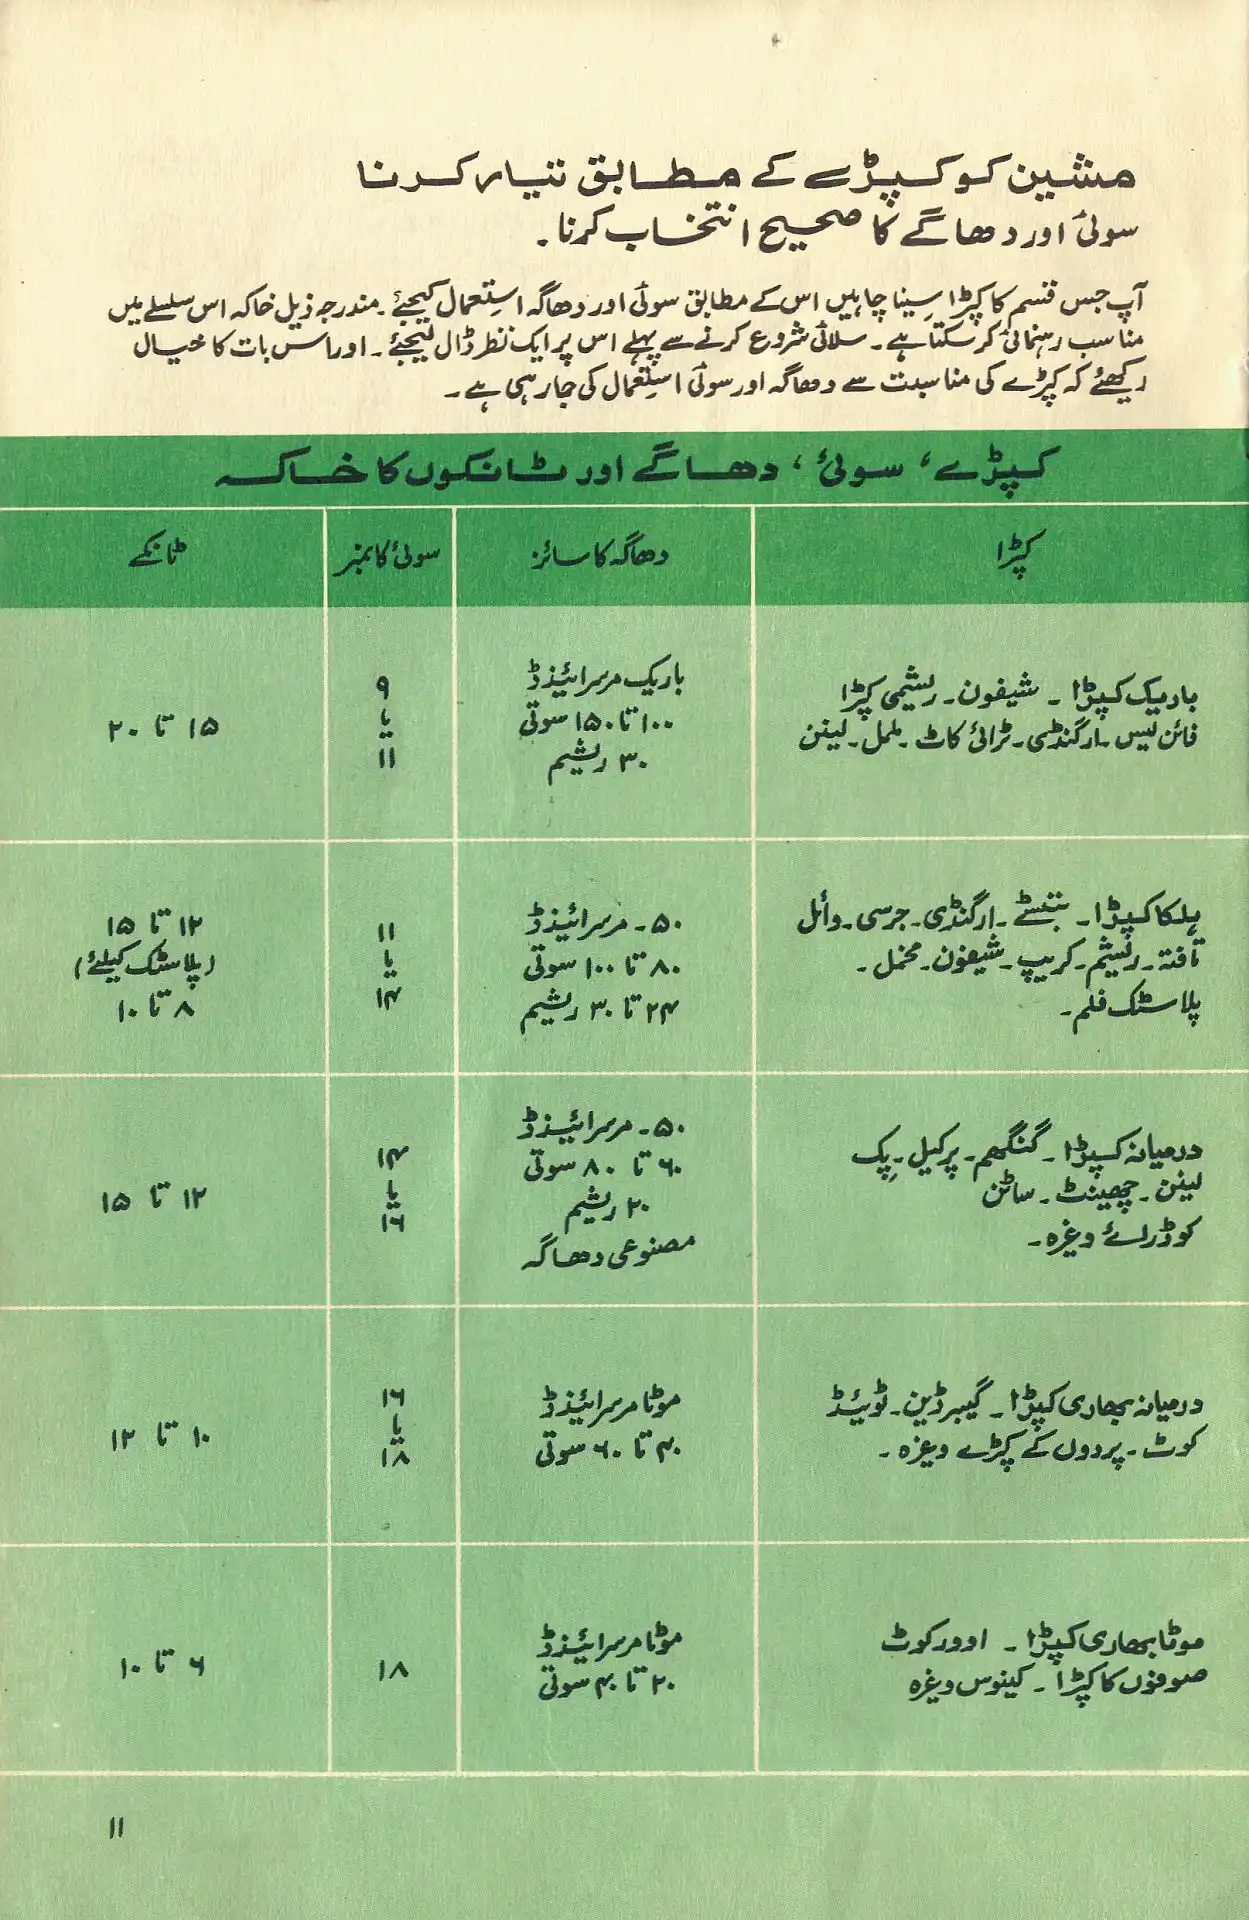 مشین کو کپڑے کے مطابق تیار کرنا
سوئی اور دھاگے کا صحیح انتخاب کرنا۔
آپ جس قسم کا کپڑا سِینا چاہیں اس کے مطابق سوئی اور دھاگہ استِعمال کیجئے۔ مندرجہ ذیل خاکہ اس سلسلے میں
مناسب رہنمائی کر سکتا ہے۔ سلائی شروع کرنے سے پہلے اس پر ایک نظر ڈال لیجئے۔ اور اس بات کا خیال
رکھئے کہ کپڑے کی مناسبت سے دھاگہ اور سوئی استِعمال کی جا رہی ہے۔
کپڑے، سوئی، دھاگے اور ٹانکوں کا خاکہ
کپڑا
دھاگہ کا سائز
سوئی کا نمبر
ٹانکے
باریک کپڑا ۔ شیفون۔ ریشمی کپڑا
فائن لیس۔ ارگنڈی۔ ٹرائی کاٹ۔ ململ۔ لینن
باریک مرسرائیزڈ
۱۰۰ تا ۱۵۰ سوتی
۳۰ ریشیم
۹
یا
۱۱
۱۵ تا ۲۰
ہلکا کپڑا۔ بتسٹے۔ ارگنڈی۔ جرسی۔ وائل
تافتہ۔ ریشیم۔ کریپ۔ شیفون۔ مخمل۔
پلاسٹک فلم۔
۵۰۔ مرسرائیزڈ
۸۰ تا ۱۰۰ سوتی
۲۴ تا ۳۰ ریشیم
۱۱
یا
۱۴
۱۲ تا ۱۵
(پلاسٹک کیلئے)
۸ تا ۱۰
درمیانہ کپڑا۔ گنگھم۔ پرکیل۔ پِک
لینن۔ چھینٹ۔ ساٹن
کوڈرائے وغیرہ۔
۵۰۔ مرسرائیزڈ
۶۰ تا ۸۰ سوتی
۲۰ ریشیم
مصنوعی دھاگہ
۱۴
یا
۱۶
۱۲ تا ۱۵
درمیانہ بھاری کپڑا۔ گیبرڈین۔ ٹوئیڈ
کوٹ۔ پردوں کے کپڑے وغیرہ۔
موٹا مرسرائیزڈ
۴۰ تا ۶۰ سوتی
۱۶
یا
۱۸
۱۰ تا ۱۲
موٹا بھاری کپڑا۔ اوورکوٹ
صوفوں کا کپڑا۔ کینوس وغیرہ
موٹا مرسرائیزڈ
۲۰ تا ۴۰ سوتی
۱۸
۶ تا ۱۰
۱۱